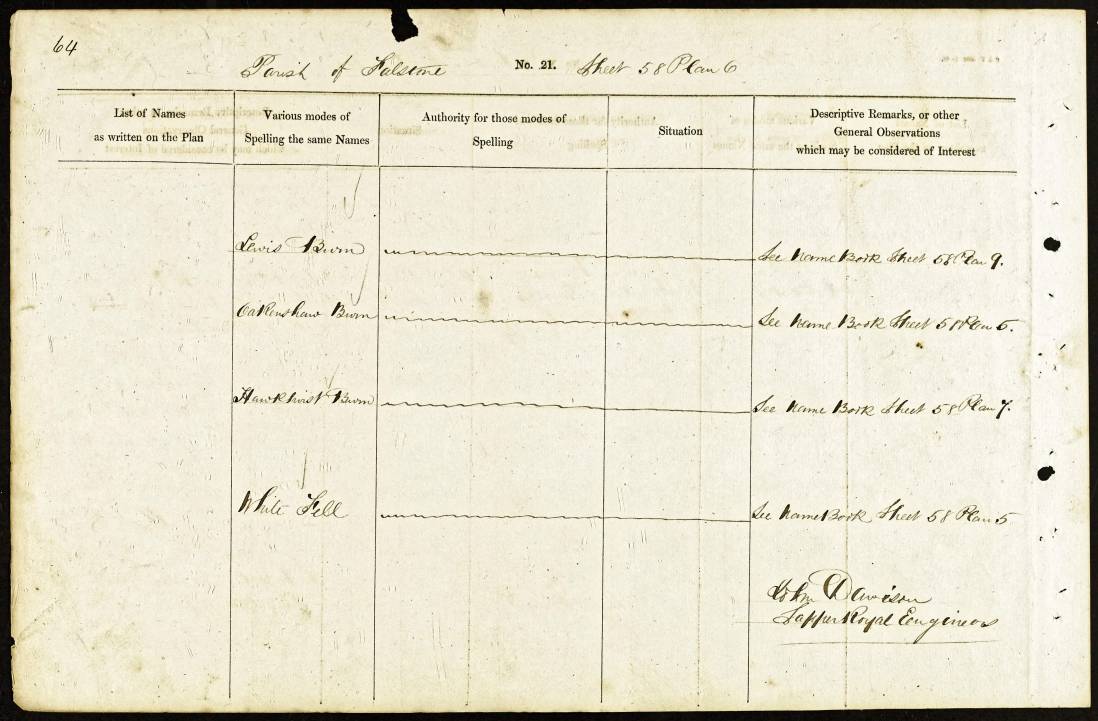 64
Parish of Falstone No. 21. Sheet 58 Plan 6
List of Names
as written on the Plan
Various modes of
Spelling the same Names
Authority for those modes of
Spelling
Situation
Descriptive Remarks, or other
General Observations
which may be considered of Interest
Lewis Burn See Name Book Sheet 58 Plan 9.
Oakenshaw Burn See Name Book Sheet 58 Plan 5.
Hawkhirst Burn See Name Book Sheet 58 Plan 7.
White Fell See Name Book Sheet 58 Plan 5
John Davison
Sapper Royal Engineers